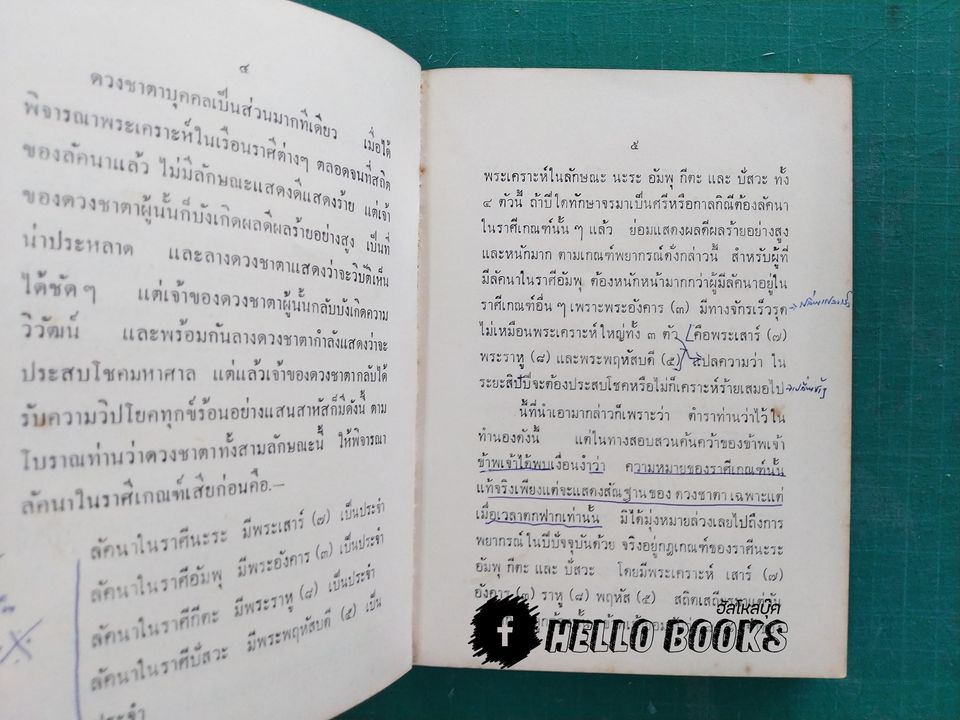 ๔
ดวงชาตาบุคคลเป็นส่วนมากทีเดียว เมื่อได้
พิจารณาพระเคราะห์ในเรือนราศีต่างๆ ตลอดจนที่สถิต
ของลัคนาแล้ว ไม่มีลักษณะแสดงดีแสดงร้าย แต่เจ้า
ของดวงชาตาผู้นั้นก็บังเกิดผลดีผลร้ายอย่างสูง เป็นที่
น่าประหลาด และลางดวงชาตาแสดงว่าจะวิบัติเห็น
ได้ชัดๆ แต่เจ้าของดวงชาตาผู้นั้นกลับบังเกิดความ
วิวัฒน์ และพร้อมกันลางดวงชาตากำลังแสดงว่าจะ
ประสบโชคมหาศาล แต่แล้วเจ้าของดวงชาตากลับได้
รับความวิปโยคทุกข์ร้อนอย่างแสนสาหัสก็มีดังนี้ ตาม
โบราณท่านว่าดวงชาตาทั้งสามลักษณะนี้ ให้พิจารณา
ลัคนาในราศีเกณฑ์เสียก่อนคือ.—
ลัคนาในราศีนะระ มีพระเสาร์ (๗) เป็นประจำ
ลัคนาในราศีอัมพุ มีพระอังคาร (๓) เป็นประจำ
ลัคนาในราศีกีตะ มีพระราหู (๘) เป็นประจำ
ลัคนาในราศีปัสวะ มีพระพฤหัสบดี (๕) เป็น
ประจำ
๕
พระเคราะห์ในลักษณะ นะระ อัมพุ กีตะ และ ปัสวะ ทั้ง
๔ ตัวนี้ ถ้าปีใดทักษาจรมาเป็นศรีหรือกาลกิณีต้องลัคนา
ในราศีเกณฑ์นั้น ๆ แล้ว ย่อมแสดงผลดีผลร้ายอย่างสูง
และหนักมาก ตามเกณฑ์พยากรณ์ดั่งกล่าวนี้ สำหรับผู้ที่
มีลัคนาในราศีอัมพุ ต้องหนักหน้ามากกว่าผู้มีลัคนาอยู่ใน
ราศีเกณฑ์อื่น ๆ เพราะพระอังคาร (๓) มีทางจักรเร็วรุด
ไม่เหมือนพระเคราะห์ใหญ่ทั้ง ๓ ตัว คือพระเสาร์ (๗)
พระราหู (๘) และพระพฤหัสบดี (๕) แปลความว่า ใน
ระยะสิปปีจะต้องประสบโชคหรือไม่ก็เคราะห์ร้ายเสมอไป
นี้ที่นำเอามากล่าวก็เพราะว่า ตำราท่านว่าไว้ใน
ทำนองดังนี้ แต่ในทางสอบสวนค้นคว้าของข้าพเจ้า
ข้าพเจ้าได้พบเงื่อนงำว่า ความหมายของราศีเกณฑ์นั้น
แท้จริงเพียงแต่จะแสดงสัณฐานของ ดวงชาตา เฉพาะแต่
เมื่อเวลาตกฟากเท่านั้น มิได้มุ่งหมายล่วงเลยไปถึงการ
พยากรณ์ ในปีปัจจุบันด้วย จริงอยู่กฎเกณฑ์ของราศีนะระ
อัมพุ กีตะ และ ปัสวะ โดยมีพระเคราะห์ เสาร์ (๗)
อังคาร (๓) ราหู (๘) พฤหัส (๕) สถิต
ฮัลโหลบุ๊ค
f HELLO BOOKS